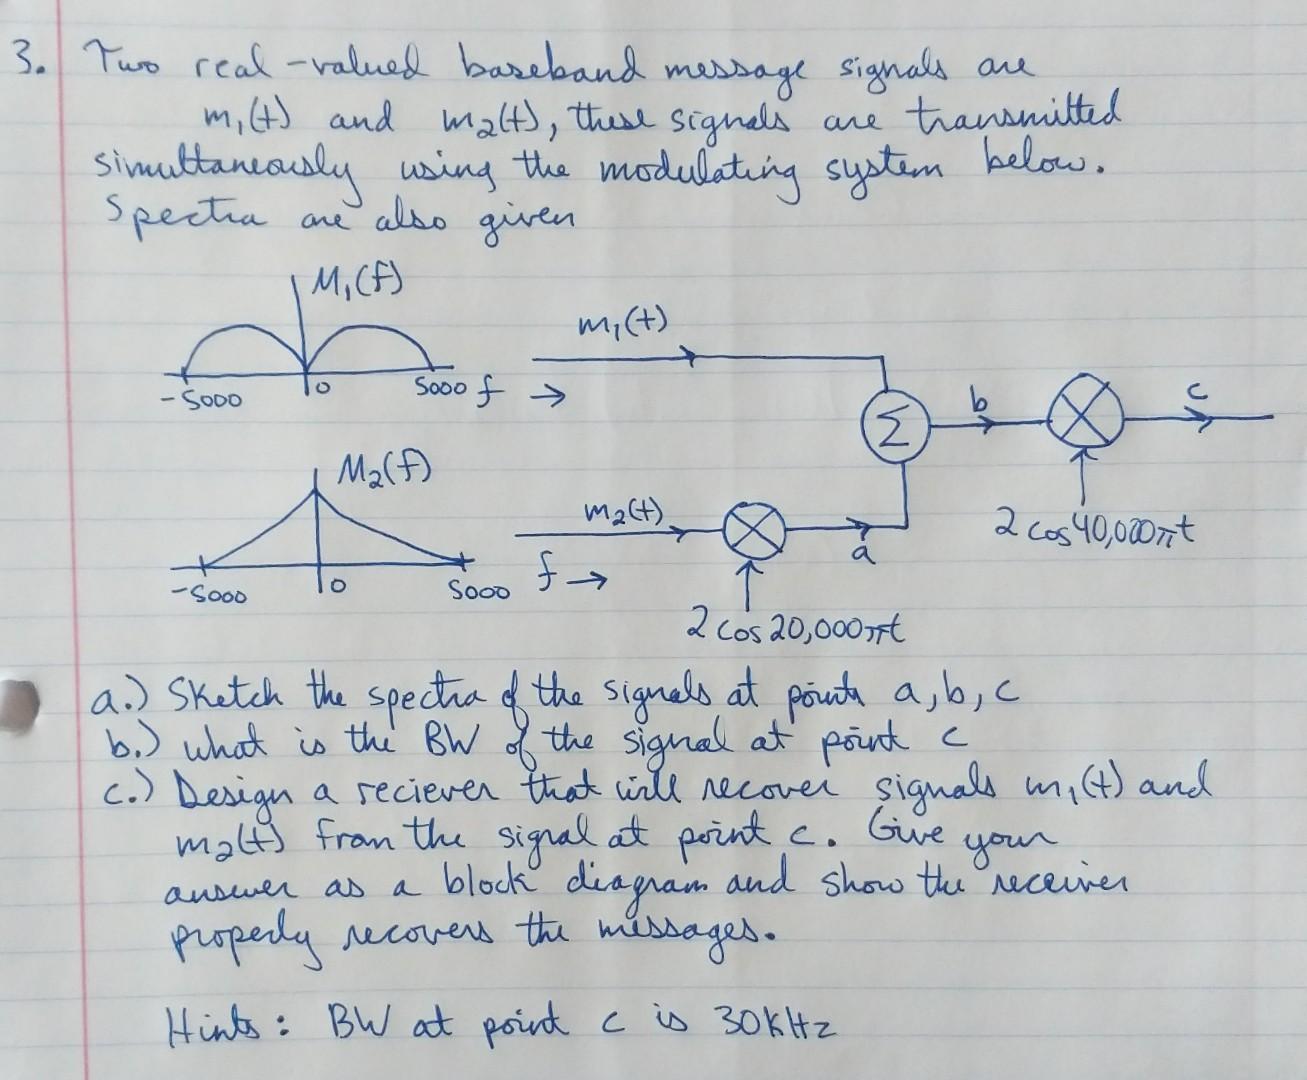 3. Two real-valued baseband message signals are
m₁(t) and m₂(t), these signals are transmitted
simultaneously using the modulating system below.
Spectra are also given
M₁(f)
m₁(t)
-5000 0 5000 f →
Σ b c
M₂(f)
m₂(t)
a
2 cos 40,000πt
-5000 0 5000 f →
2 cos 20,000πt
a.) Sketch the spectra of the signals at points a, b, c
b.) what is the BW of the signal at point c
c.) Design a reciever that will recover signals m₁(t) and
m₂(t) from the signal at point c. Give your
answer as a block diagram and show the receiver
properly recovers the messages.
Hints: BW at point c is 30KHz